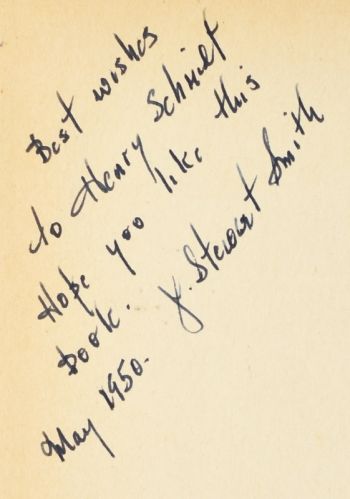 Best wishes
to Henry Schmidt
Hope you like this
book.
J. Stewart Smith
May 1950.